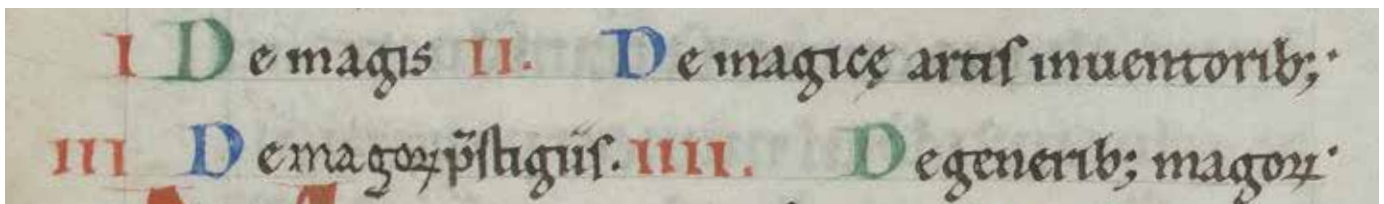 I De magis II. De magicę artiſ inuentorib;·
III De magoꝝ p̃ſtigiiſ. IIII. De generib; magoꝝ·